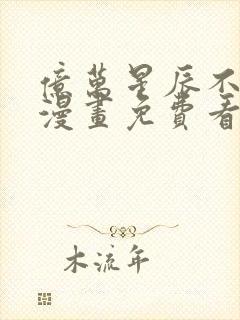 億萬星辰不
漫畫免費看
木流年